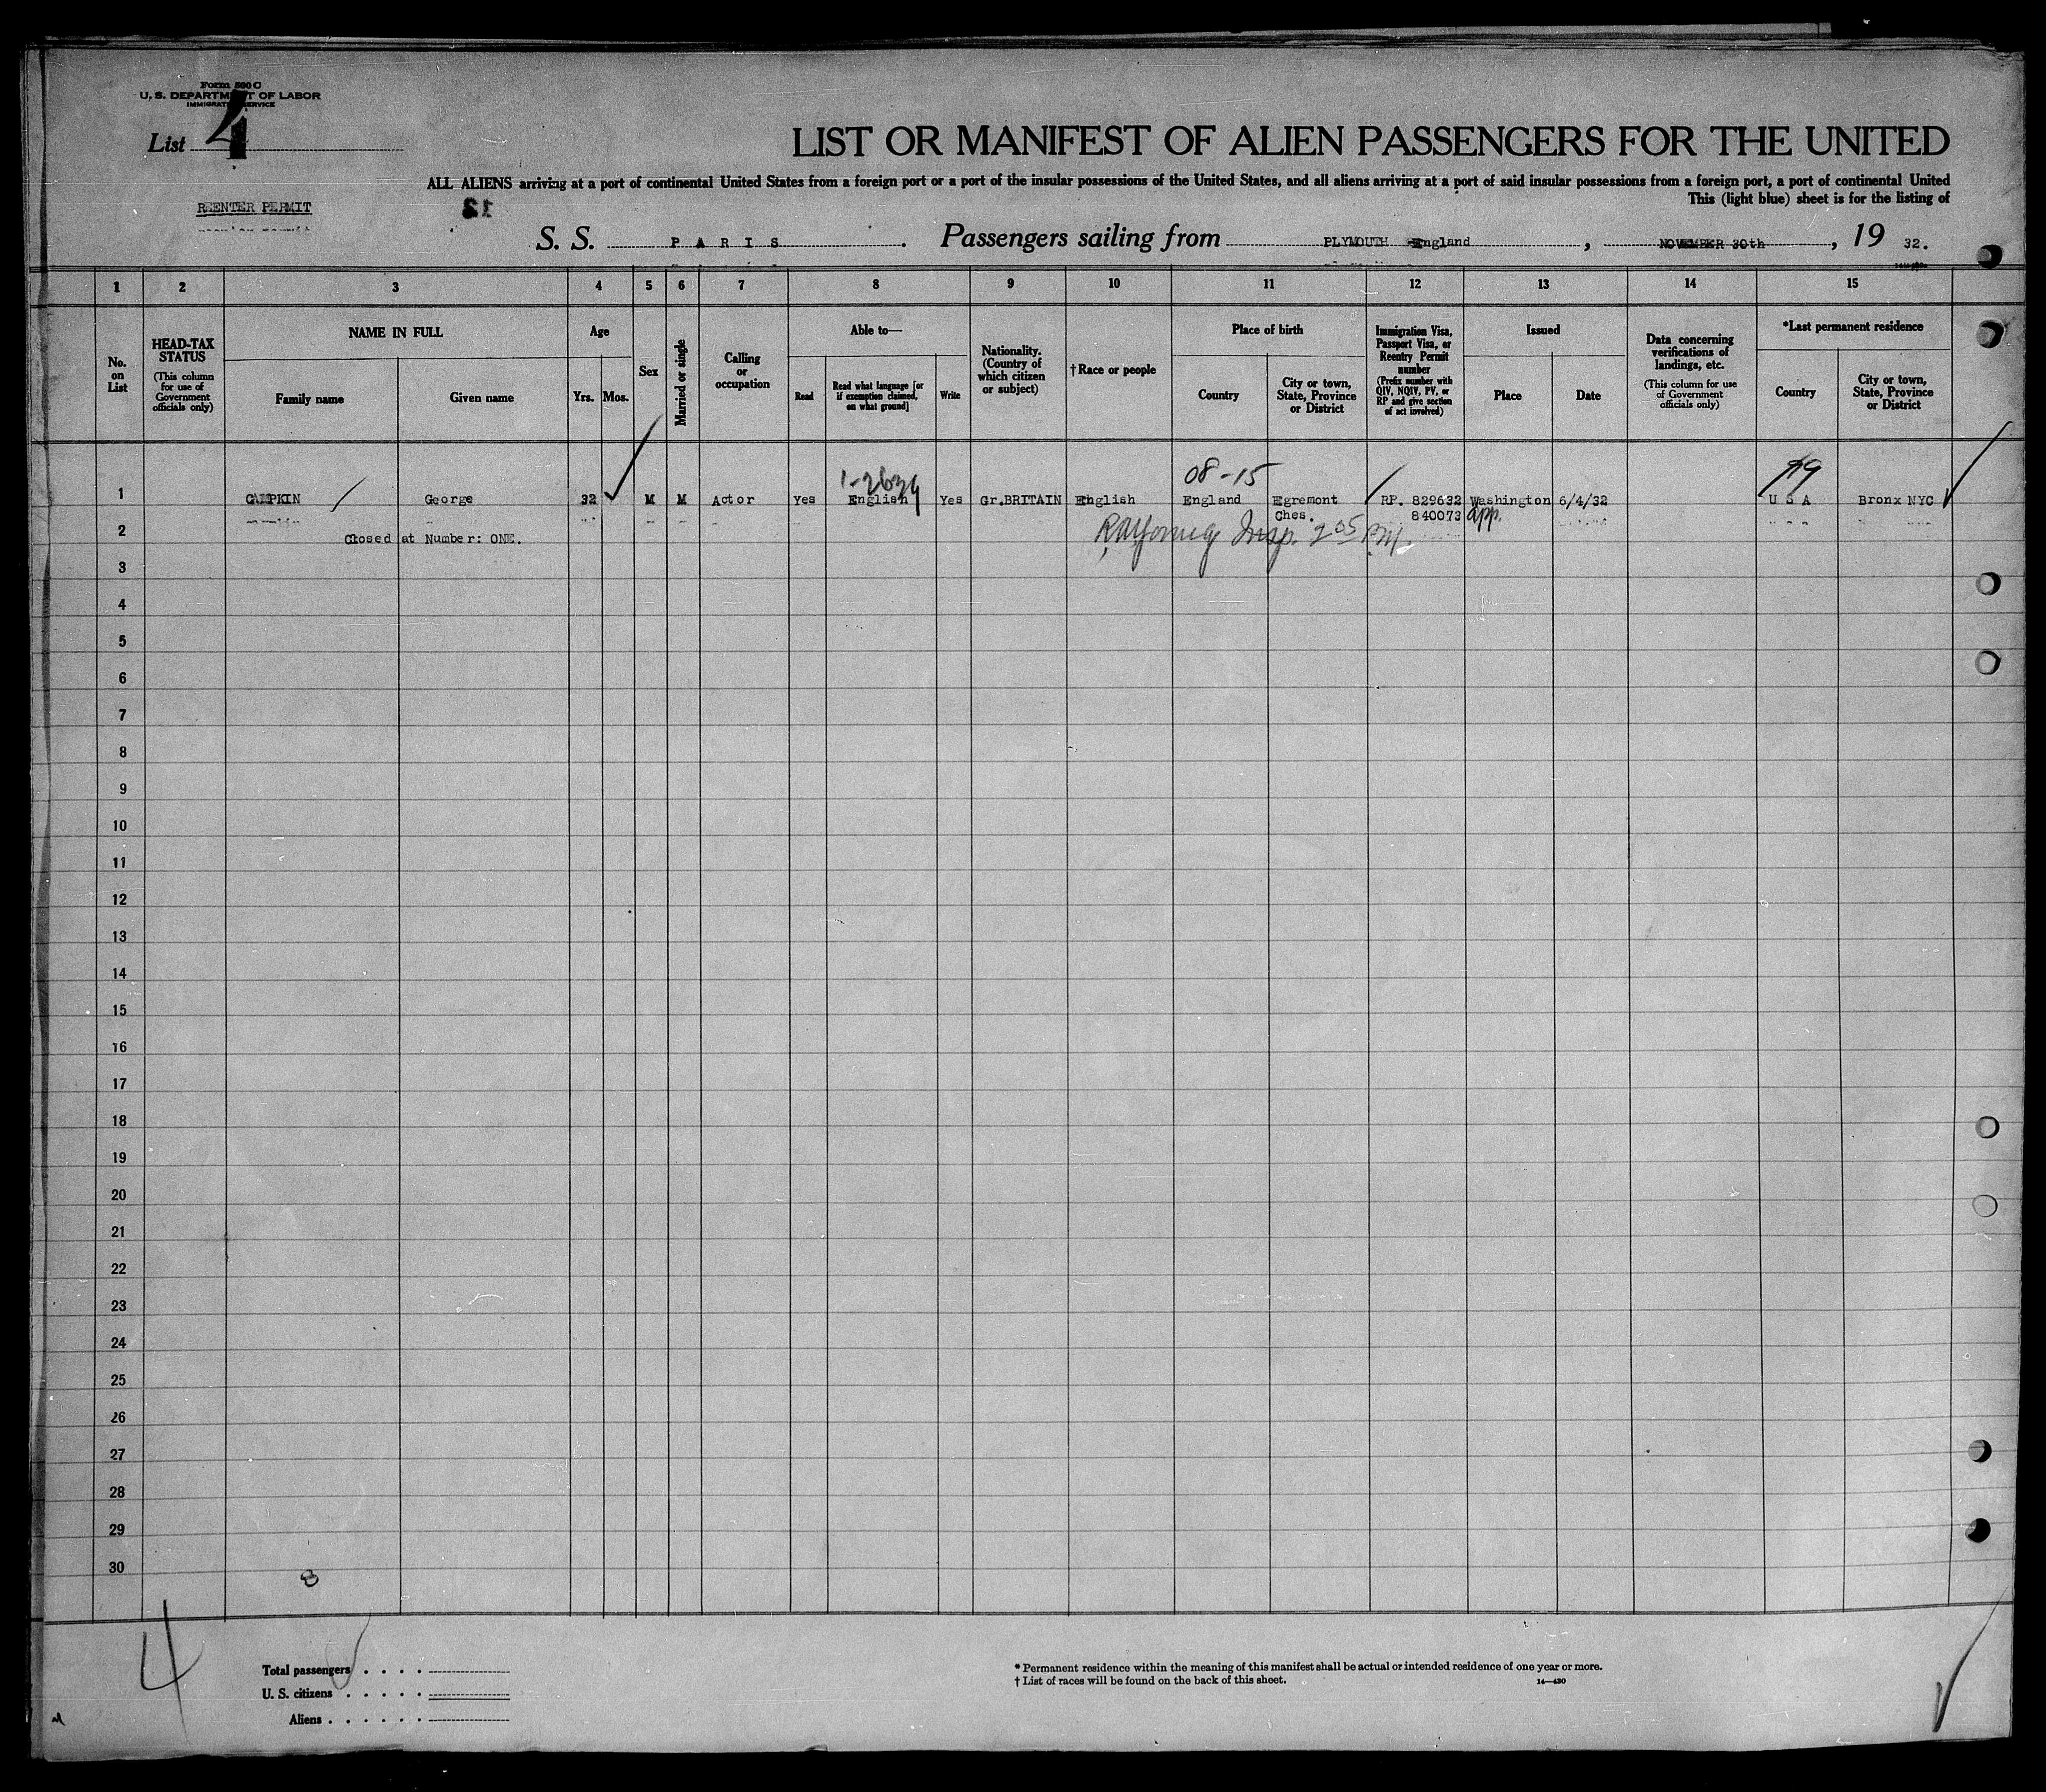 Form 500 C
U. S. DEPARTMENT OF LABOR
IMMIGRATION SERVICE
List 4
LIST OR MANIFEST OF ALIEN PASSENGERS FOR THE UNITED
ALL ALIENS arriving at a port of continental United States from a foreign port or a port of the insular possessions of the United States, and all aliens arriving at a port of said insular possessions from a foreign port, a port of continental United
This (light blue) sheet is for the listing of
REENTER PERMIT
S. S. PARIS. Passengers sailing from PLYMOUTH England, NOVEMBER 30th, 19 32.
1 2 3 4 5 6 7 8 9 10 11 12 13 14 15
No. on List
HEAD-TAX STATUS
(This column for use of Government officials only)
NAME IN FULL
Family name Given name
Age
Yrs. Mos.
Sex
Married or single
Calling or occupation
Able to—
Read
Read what language [or if exemption claimed, on what ground]
Write
Nationality. (Country of which citizen or subject)
†Race or people
Place of birth
Country
City or town, State, Province or District
Immigration Visa, Passport Visa, or Reentry Permit number
(Prefix number with QIV, NQIV, PV, or RP and give section of act involved)
Issued
Place Date
Data concerning verifications of landings, etc.
(This column for use of Government officials only)
*Last permanent residence
Country
City or town, State, Province or District
1-2634 08-15 99
1 CAMPKIN George 32 M M Actor Yes English Yes Gr.BRITAIN English England Egremont RP. 829632 Washington 6/4/32 U S A Bronx NYC
Ches. 840073 app.
2 Closed at Number: ONE. Insp. 2 05 P.M.
3
4
5
6
7
8
9
10
11
12
13
14
15
16
17
18
19
20
21
22
23
24
25
26
27
28
29
30
8
4
Total passengers . . . .
U. S. citizens . . . . .
Aliens . . . . . .
* Permanent residence within the meaning of this manifest shall be actual or intended residence of one year or more.
† List of races will be found on the back of this sheet.
14—430